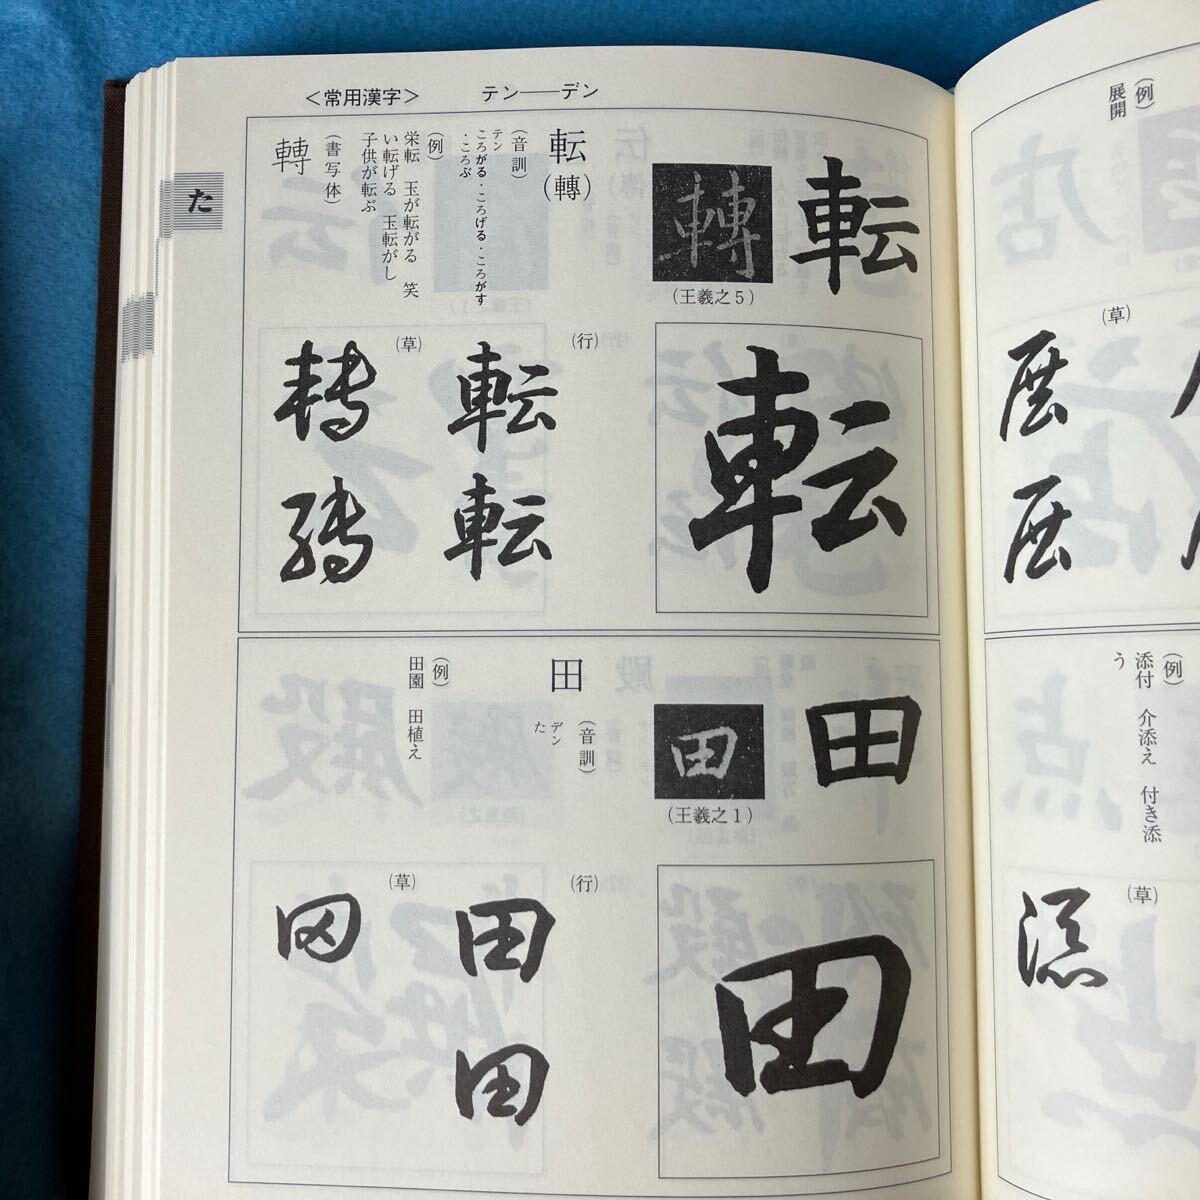 ＜常用漢字＞　テン――デン
た
転
轉
（王羲之５）
転（轉）
（音訓）
テン
ころがる・ころげる・ころがす
・ころぶ
（例）
栄転　玉が転がる　笑
い転げる　玉転がし
子供が転ぶ
（書写体）
轉
転
（行）
転
転
（草）
轉
轉
田
田
（王羲之１）
田
（音訓）
デン
た
（例）
田園　田植え
田
（行）
田
田
（草）
田
（例）
展開
（草）
展
展
（例）
添付　介添え　付き添
う
（草）
添